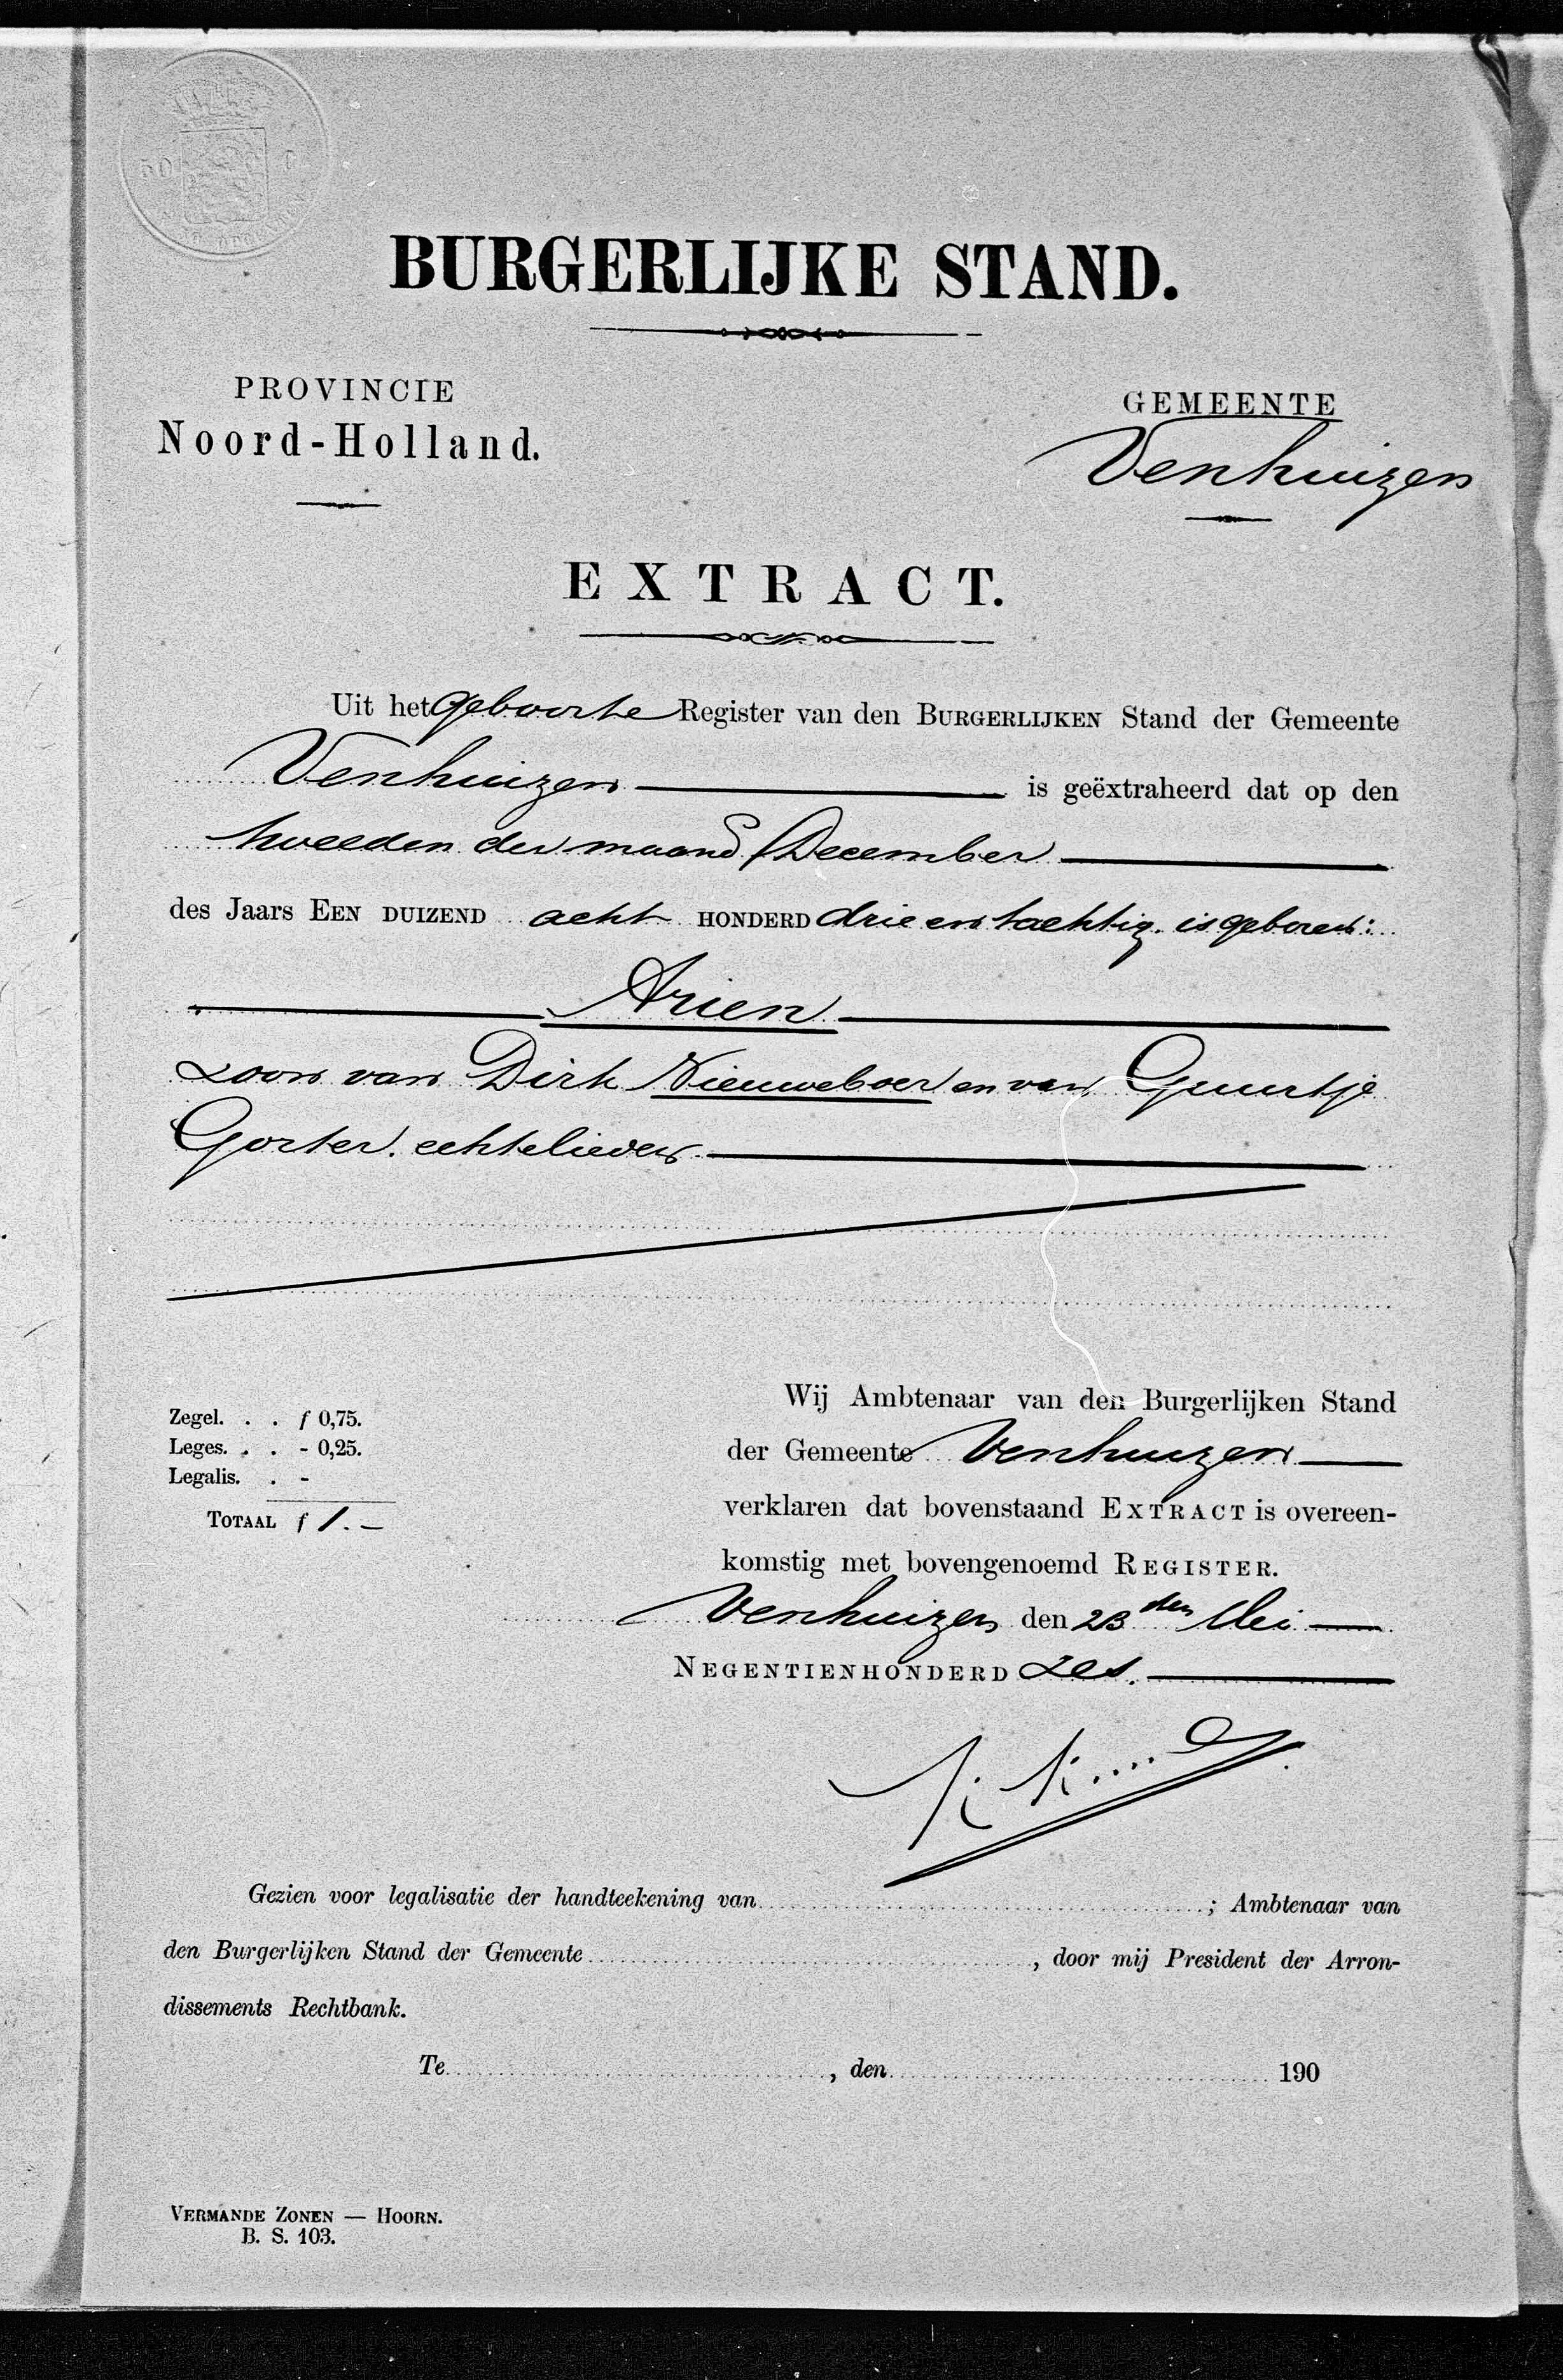 BURGERLIJKE STAND.
PROVINCIE
Noord-Holland.
GEMEENTE
Venhuizen
EXTRACT.
Uit het geboorte Register van den BURGERLIJKEN Stand der Gemeente
Venhuizen is geëxtraheerd dat op den
tweeden der maand December
des Jaars EEN DUIZEND acht HONDERD drie en tachtig. is geboren:
Arien
zoon van Dirk Nieuweboer en van Guurtje
Gorter. echtelieden
Zegel. . . f 0,75.
Leges. . . - 0,25.
Legalis. . -
TOTAAL f 1.-
Wij Ambtenaar van den Burgerlijken Stand
der Gemeente Venhuizen
verklaren dat bovenstaand EXTRACT is overeen-
komstig met bovengenoemd REGISTER.
Venhuizen den 23den Mei
NEGENTIENHONDERD zes.
Gezien voor legalisatie der handteekening van ; Ambtenaar van
den Burgerlijken Stand der Gemeente , door mij President der Arron-
dissements Rechtbank.
Te , den 190
VERMANDE ZONEN — HOORN.
B. S. 103.